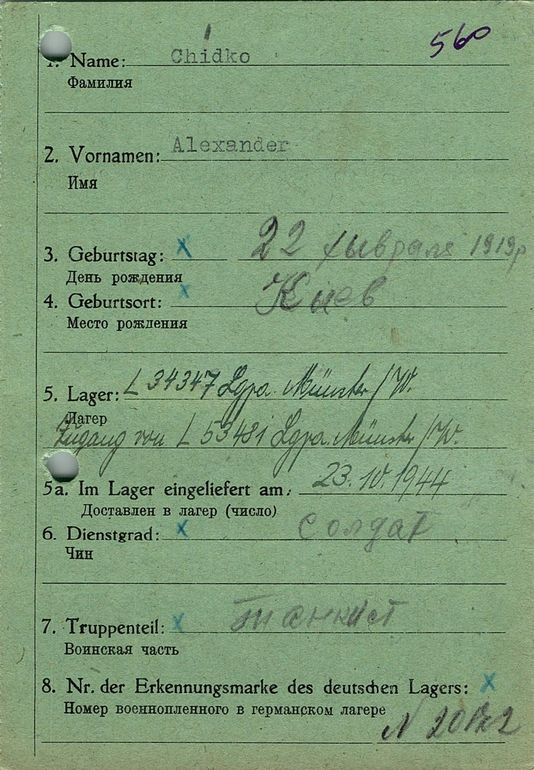 560
1. Name: Chidko
Фамилия
2. Vornamen: Alexander
Имя
3. Geburtstag: x 22 февраля 1919г
День рождения
4. Geburtsort: x Киев
Место рождения
5. Lager: L 34347 Lgpa. Münster/W.
Лагер
Zugang von L 53481 Lgpa. Münster/W.
5a. Im Lager eingeliefert am: 23.10.1944
Доставлен в лагер (число)
6. Dienstgrad: x солдат
Чин
7. Truppenteil: x танкист
Воинская часть
8. Nr. der Erkennungsmarke des deutschen Lagers: x
Номер военнопленного в германском лагере
N